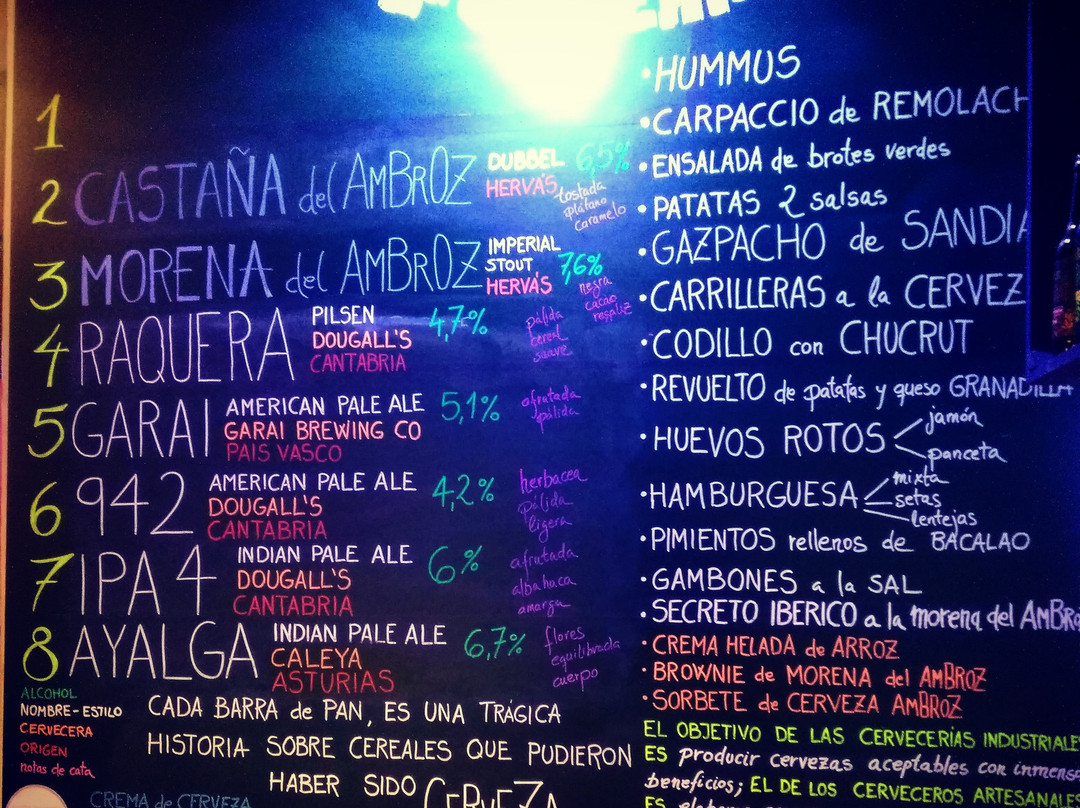 1
2 CASTAÑA del AMBROZ DUBBEL 6,5%
HERVÁS
tostada
plátano
caramelo
3 MORENA del AMBROZ IMPERIAL
STOUT 7,6%
HERVÁS
negra
cacao
4 RAQUERA PILSEN 4,7%
DOUGALL'S
CANTABRIA
pálida
cereal
suave
5 GARAI AMERICAN PALE ALE 5,1%
GARAI BREWING CO
PAIS VASCO
afrutada
pálida
6 942 AMERICAN PALE ALE 4,2%
DOUGALL'S
CANTABRIA
herbacea
Pálida
ligera
7 IPA 4 INDIAN PALE ALE 6%
DOUGALL'S
CANTABRIA
afrutada
albahaca
amarga
8 AYALGA INDIAN PALE ALE 6,7%
CALEYA
ASTURIAS
flores
equilibrada
cuerpo
ALCOHOL
NOMBRE-ESTILO
CERVECERA
ORIGEN
notas de cata
CADA BARRA de PAN, ES UNA TRÁGICA
HISTORIA SOBRE CEREALES QUE PUDIERON
HABER SIDO CERVEZA
CREMA de CERVEZA
· HUMMUS
· CARPACCIO de REMOLACH
· ENSALADA de brotes verdes
· PATATAS 2 salsas
· GAZPACHO de SANDIA
· CARRILLERAS a la CERVEZ
· CODILLO con CHUCRUT
· REVUELTO de patatas y queso GRANADILLA
· HUEVOS ROTOS
jamón
panceta
· HAMBURGUESA
mixta
setas
lentejas
· PIMIENTOS rellenos de BACALAO
· GAMBONES a la SAL
· SECRETO IBERICO a la morena del AMBRO
· CREMA HELADA de ARROZ
· BROWNIE de MORENA del AMBROZ
· SORBETE de CERVEZA AMBROZ
EL OBJETIVO DE LAS CERVECERÍAS INDUSTRIALE
ES producir cervezas aceptables con inmens
beneficios; EL DE LOS CERVECEROS ARTESANALE
ES